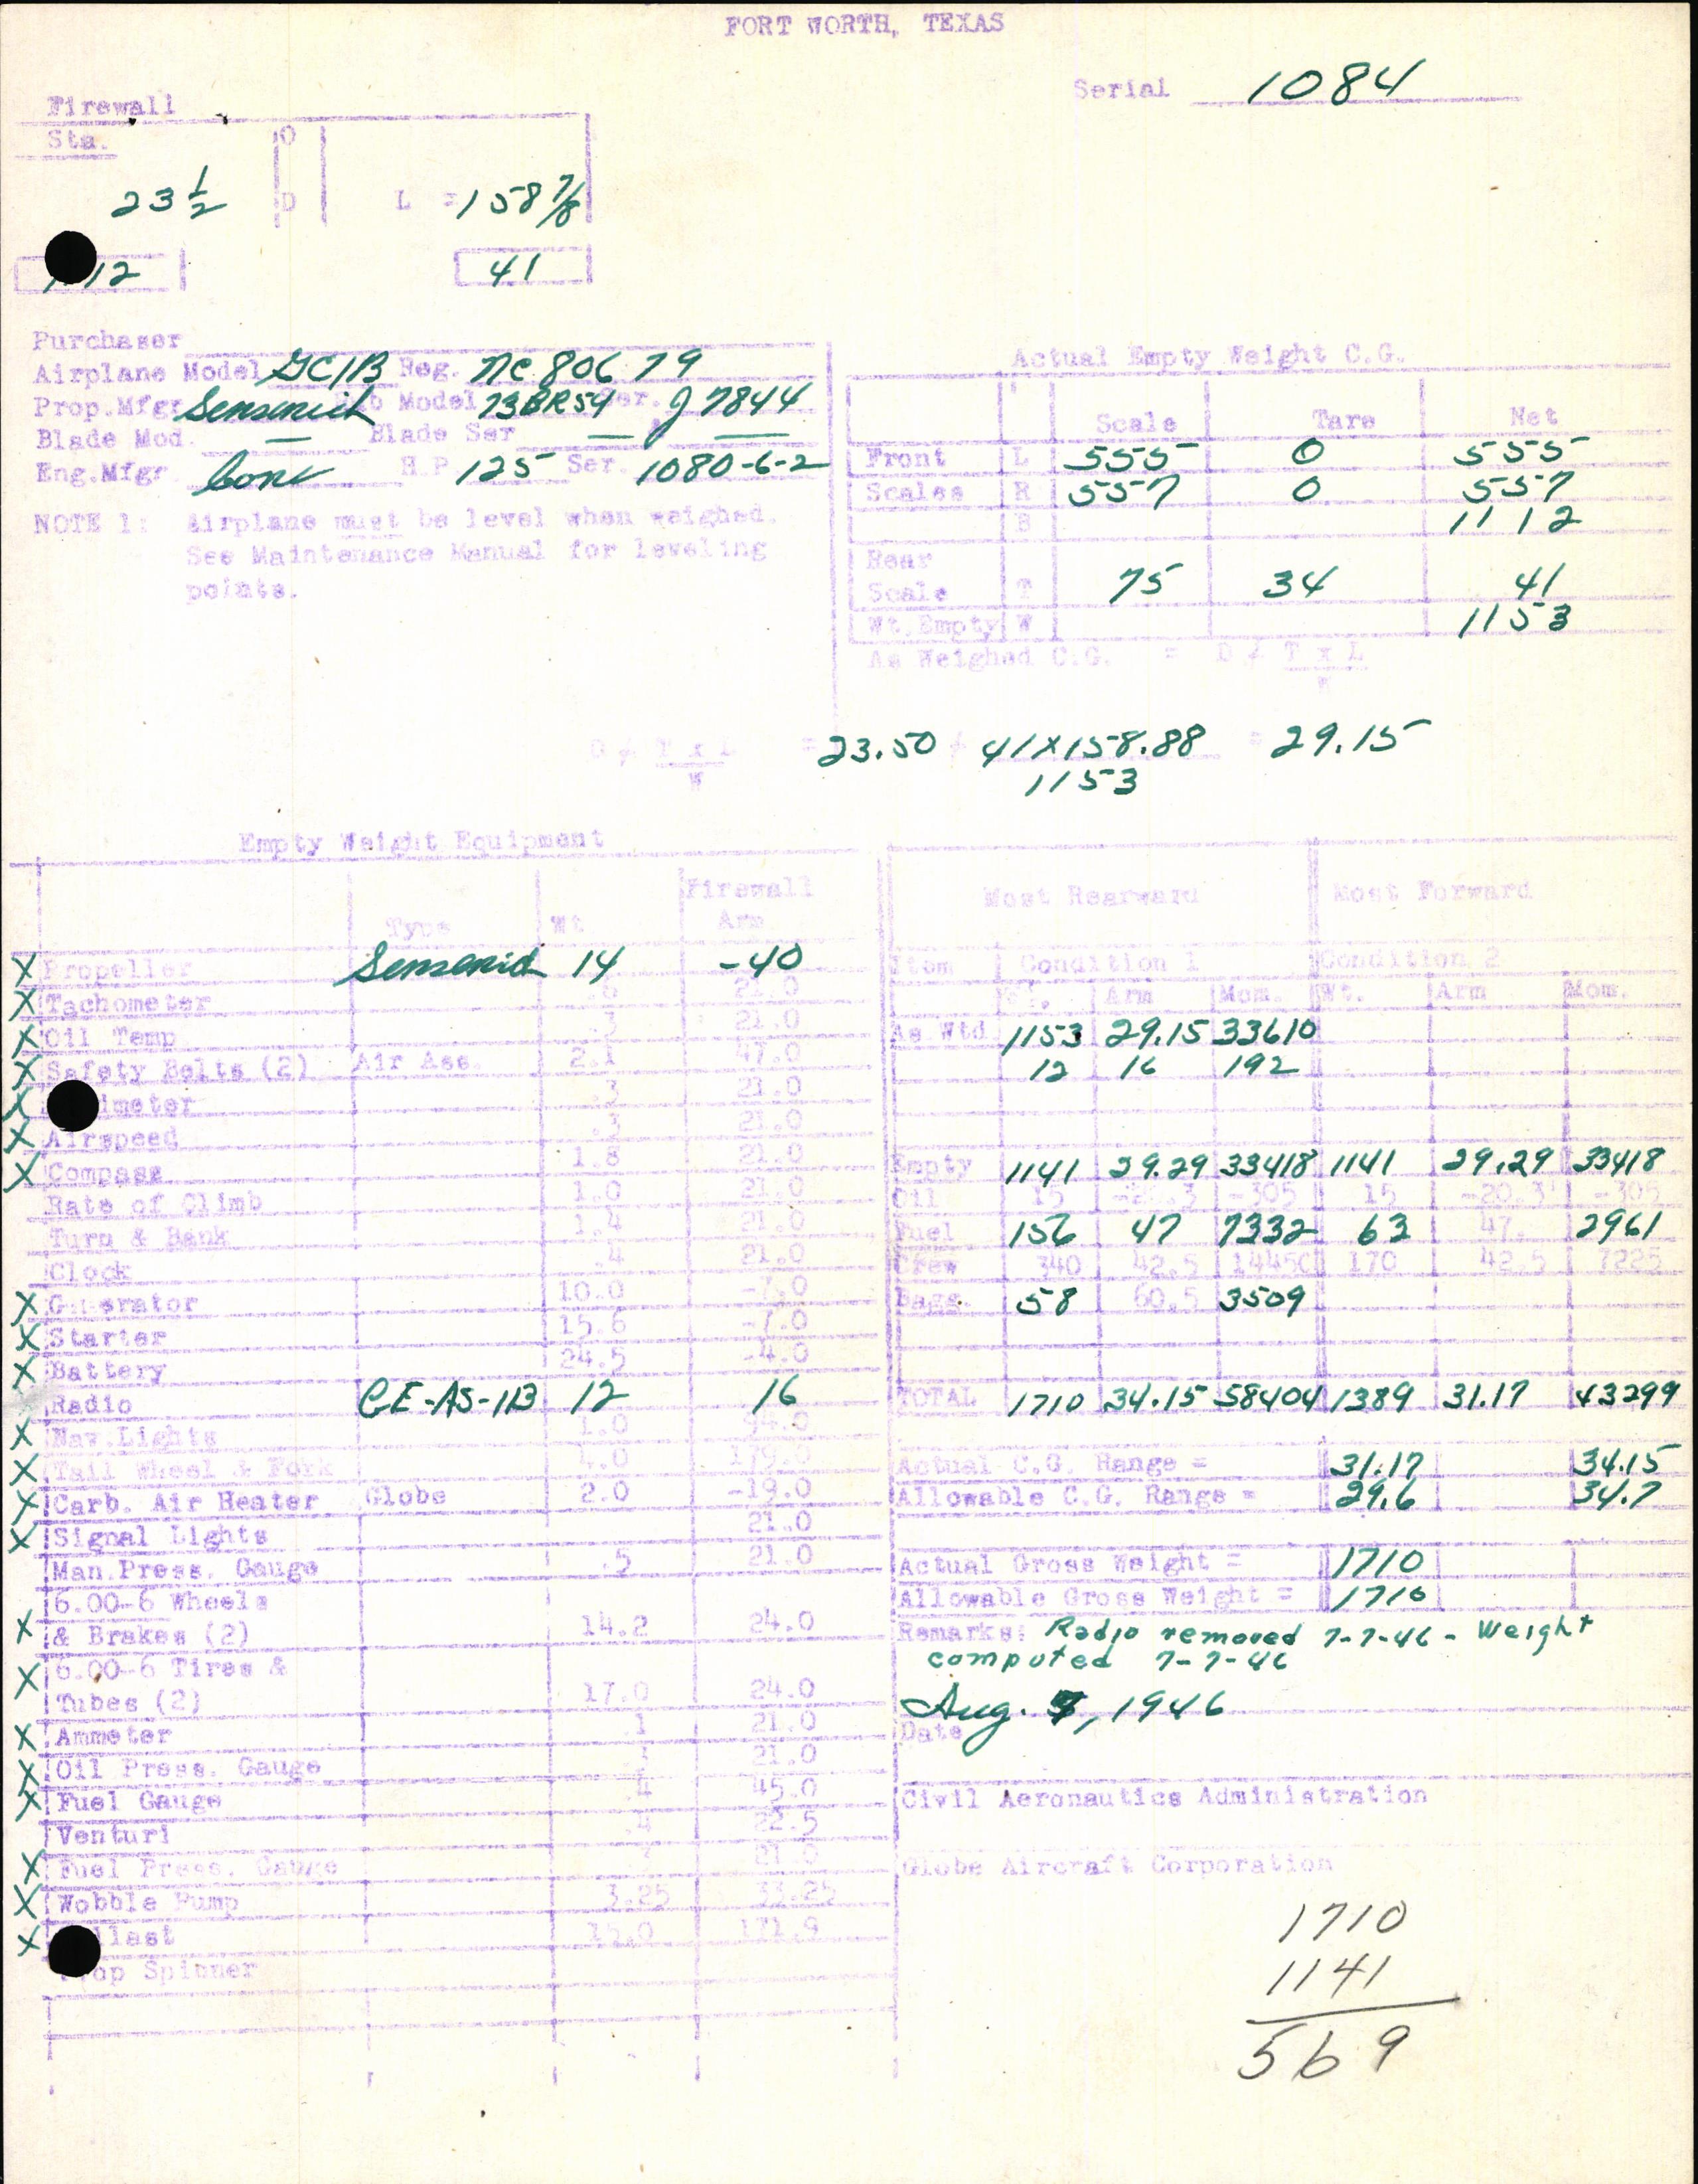 FORT WORTH, TEXAS
Serial 1084
Firewall
Sta.
O
23 1/2 D L = 158 7/8
1112 41
Purchaser
Airplane Model GC1B Reg. NC 80679
Prop.Mfgr Sensenich Hub Model 73BR54 Ser. J 7844
Blade Mod. — Blade Ser — & —
Eng.Mfgr Cont H.P. 125 Ser. 1080-6-2
NOTE 1: Airplane must be level when weighed.
See Maintenance Manual for leveling
points.
Actual Empty Weight C.G.
Scale Tare Net
Front L 555 0 555
Scales R 557 0 557
B 1112
Rear
Scale T 75 34 41
Wt.Empty W 1153
As Weighed C.G. = D ≠ T x L
W
D ≠ T x L = 23.50 ≠ 41X158.88 = 29.15
W 1153
Empty Weight Equipment
Type Wt. Firewall Arm
X Propeller Sensenich 14 -40
X Tachometer .6 21.0
X Oil Temp .3 21.0
X Safety Belts (2) Air Ass. 2.1 47.0
X Altimeter .3 21.0
X Airspeed .3 21.0
X Compass 1.8 21.0
Rate of Climb 1.0 21.0
Turn & Bank 1.4 21.0
Clock .4 21.0
X Generator 10.0 -7.0
X Starter 15.6 -7.0
X Battery 24.5 -4.0
Radio GE-AS-1B 12 16
X Nav.Lights 1.0
X Tail Wheel & Fork 4.0 179.0
X Carb. Air Heater Globe 2.0 -19.0
X Signal Lights 21.0
Man.Press. Gauge .5 21.0
6.00-6 Wheels
X & Brakes (2) 14.2 24.0
X 6.00-6 Tires &
Tubes (2) 17.0 24.0
X Ammeter .1 21.0
X Oil Press. Gauge .3 21.0
X Fuel Gauge .4 45.0
Venturi .4 22.5
X Fuel Press. Gauge 21.0
X Wobble Pump 3.25 33.25
X Ballast 15.0 171.9
Prop Spinner
Most Rearward Most Forward
Item Condition 1 Condition 2
Wt. Arm Mom. Wt. Arm Mom.
As Wtd 1153 29.15 33610
12 16 192
Empty 1141 29.29 33418 1141 29.29 33418
Oil 15 -20.3 -305 15 -20.3 -305
Fuel 156 47 7332 63 47. 2961
Crew 340 42.5 14450 170 42.5 7225
Bagg. 58 60.5 3509
TOTAL 1710 34.15 58404 1389 31.17 43299
Actual C.G. Range = 31.17 34.15
Allowable C.G. Range = 29.6 34.7
Actual Gross Weight = 1710
Allowable Gross Weight = 1710
Remarks: Radio removed 7-7-46 - Weight
computed 7-7-46
Aug. 7, 1946
Date
Civil Aeronautics Administration
Globe Aircraft Corporation
1710
1141
569